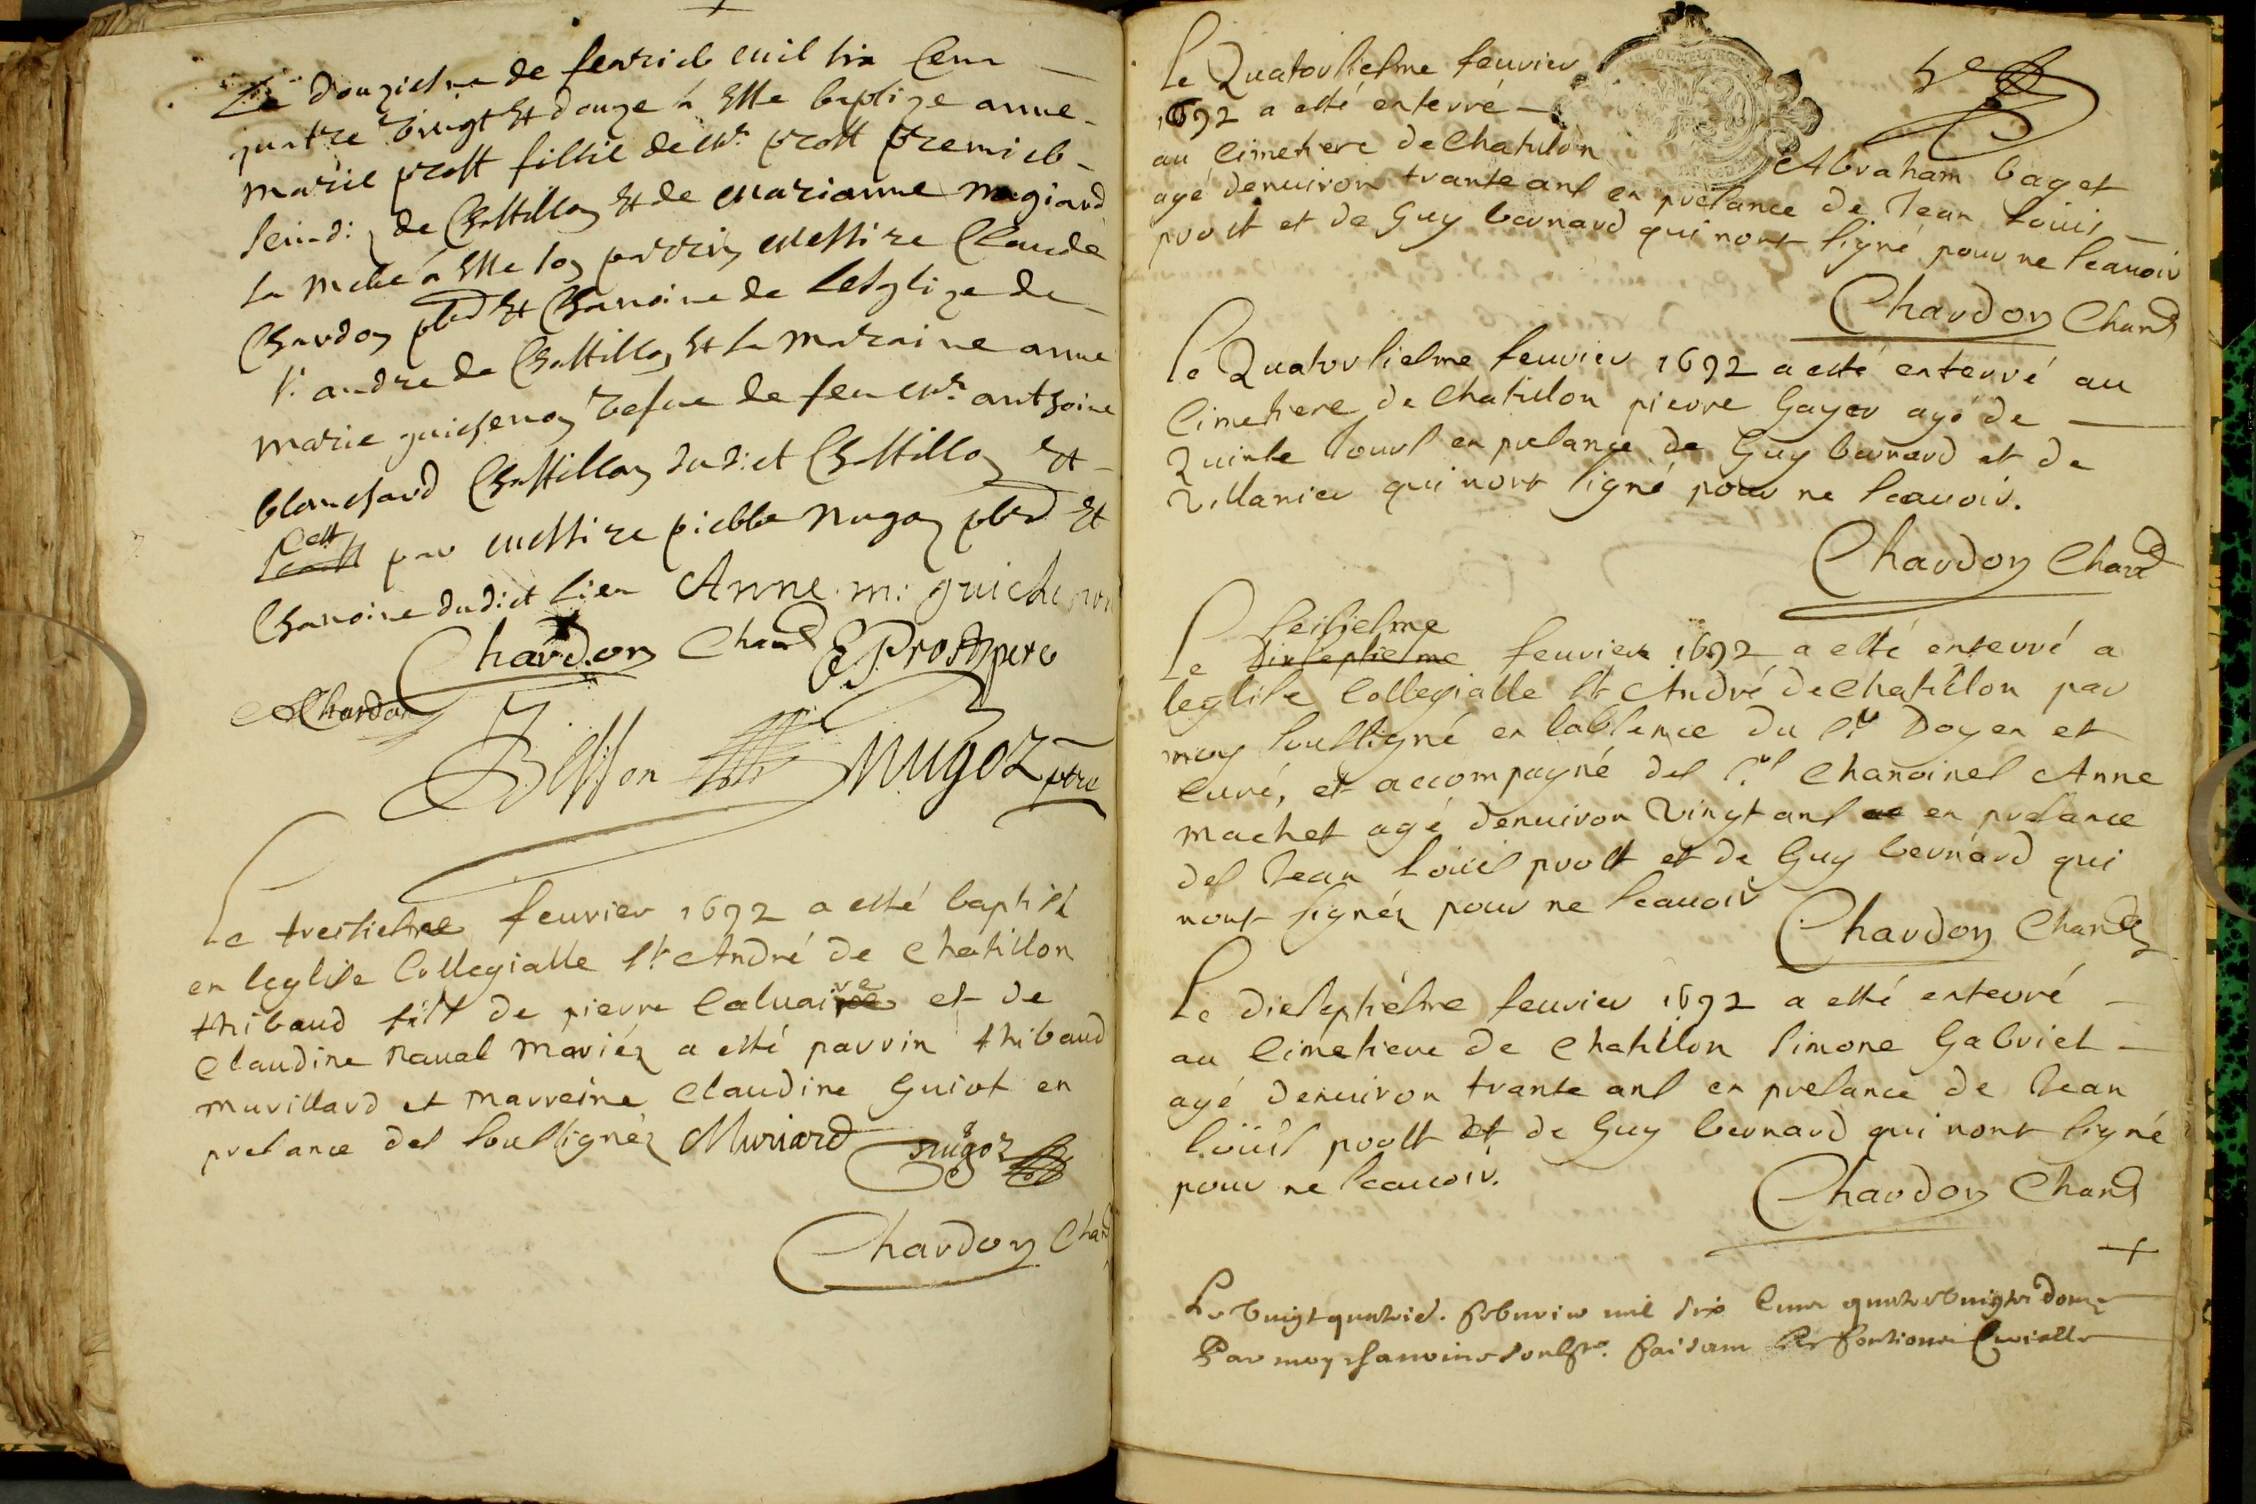 Le douziesme de feuvrier mil six Cent
quatre vingt Et douze a Este baptize anne
marie prost fillie de Mr. prost premier
sindiq de Chastillon Et de marianne nugiard
sa mere a Este son parrin messire Claude
Chardon pbre Et Chanoine de Leslglize de
St. andre de Chastillon Et la maraine anne
marie guichenon vefue de feu Mr. anthoine
blanchard Chastillon dudict Chastillon Et
Cest par messire pierre nugoz pbre Et
Chanoine dudict lieu Anne. m: guichenon
Chardon Chan E. Prost pere
A Chardon
Besson Nugoz ptre
Le treisiesme feuvrier 1692 a esté baptisé
en leglise Collegialle St André de Chatillon
thibaud fils de pierre Calvaire et de
Claudine Raual mariéz a esté parrin thibaud
murillard et marreine Claudine Guiot en
presance des soussignéz Muriard Nugoz
Chardon Chan
Le Quatorsiesme feuvrier
1692 a esté enterré
au Cimetiere de Chatillon Abraham baget
agé denuiron trante ans en presance de Jean Louis
prost et de Guy bernard qui nont signé pour ne scauoir
Chardon Chan
Le Quatorsiesme feuvrier 1692 a esté enterré au
Cimetiere de Chatillon pierre Gayer agé de
Quinse Jours en presance de Guy bernard et de
Villanier qui nont signé pour ne scauoir.
Chardon Chan
seisiesme
Le dixseptiesme feuvrier 1692 a esté enterré a
leglise Collegialle St André de Chatillon par
moy soussigné en labsence du Sr Doyen et
Curé, et accompagné des Srs Chanoines Anne
machet agé denuiron vingt ans en presance
des Jean Louis prost et de Guy bernard qui
nont signéz pour ne scauoir Chardon Chan
Le diesseptiesme feuvrier 1692 a esté enterré
au Cimetiere de Chatillon simone Gabriel
agé denuiron trante ans en presance de Jean
Loüis prost et de Guy bernard qui nont signé
pour ne scauoir. Chardon Chan
Le vingt quatrie. febvrier mil six Cent quatrevingts douze
Par moy chanoine soubsne. faisant les fonctions Curialles